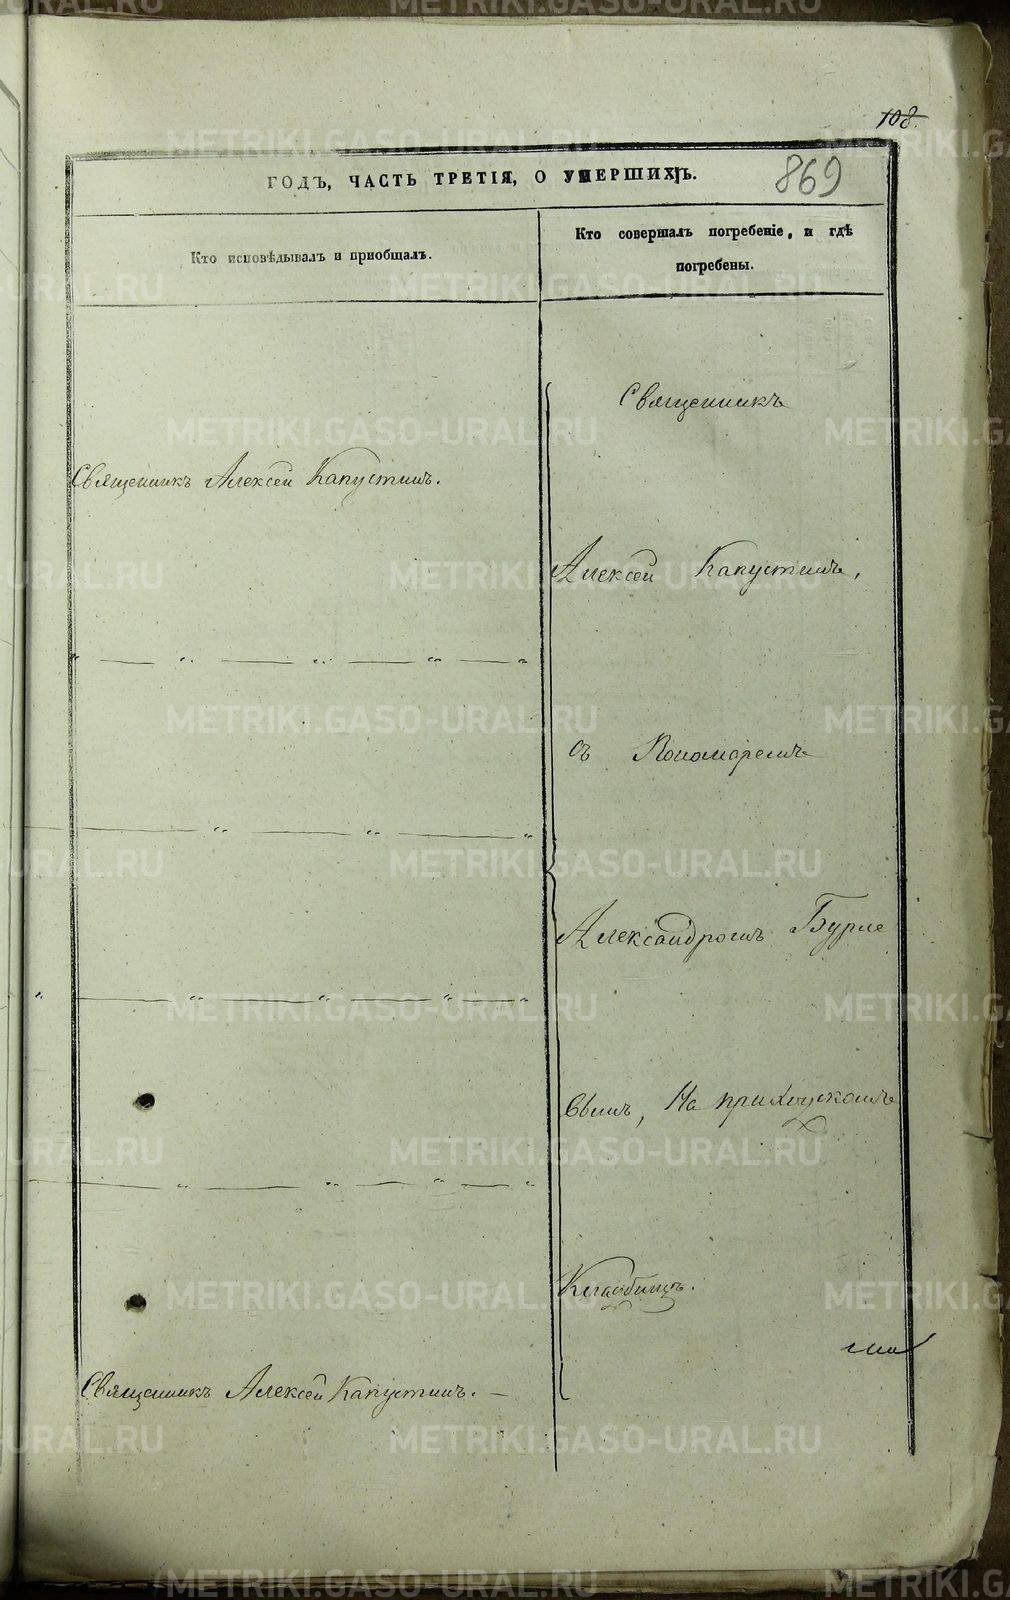 108.
869
ГОДЪ, ЧАСТЬ ТРЕТІЯ, О УМЕРШИХЪ.
Кто исповѣдывалъ и приобщалъ.
Кто совершалъ погребеніе, и гдѣ
погребены.
Священникъ
Священникъ Алексей Капустинъ.
Алексей Капустинъ,
съ Пономаремъ
Александромъ Бурме
вымъ, На приходскомъ
Кладбищѣ.
Священникъ Алексей Капустинъ. —
METRIKI.GASO-URAL.RU